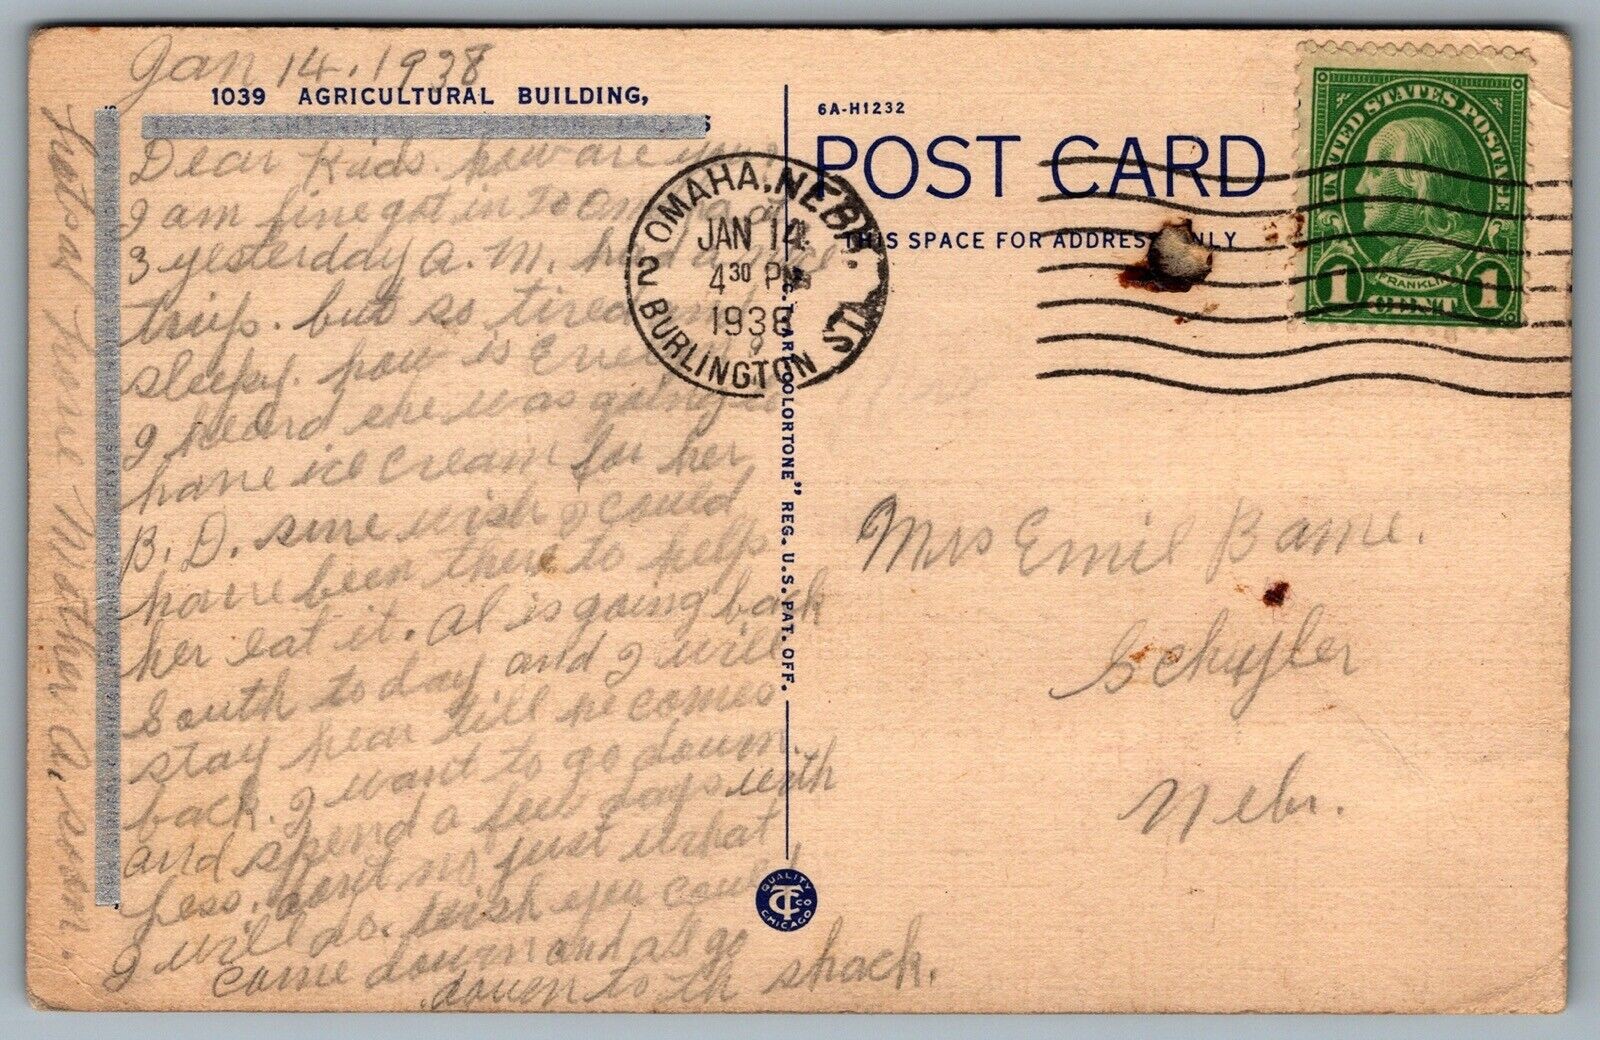 Jan 14. 1938
1039 AGRICULTURAL BUILDING,
TEXAS CENTENNIAL EXPOSITION, DALLAS
Dear Kids. how are you.
I am fine got in to Omaha at
3 yesterday A. M. had a nice
trip. but so tired and
sleepy. how is
I heard she was going to
have ice cream for her
B. D. sure wish I could
have been there to help
her eat it. Al is going back
South to day and I will
stay hear till he comes
back. I want to go down.
and spend a few days with
Less. dont no just what
I will do. wish you could
come down and all go
down to th shack.
Mother A. soon.
6A-H1232
POST CARD
THIS SPACE FOR ADDRESS ONLY
C. T. ART COLORTONE" REG. U.S. PAT. OFF.
OMAHA, NEBR.
JAN 14
4 30 PM
1938
2 BURLINGTON STA
UNITED STATES POSTAGE
FRANKLIN
1 CENT 1
Mrs Emil Bame.
Schuyler
Nebr.
QUALITY
CT CO
CHICAGO